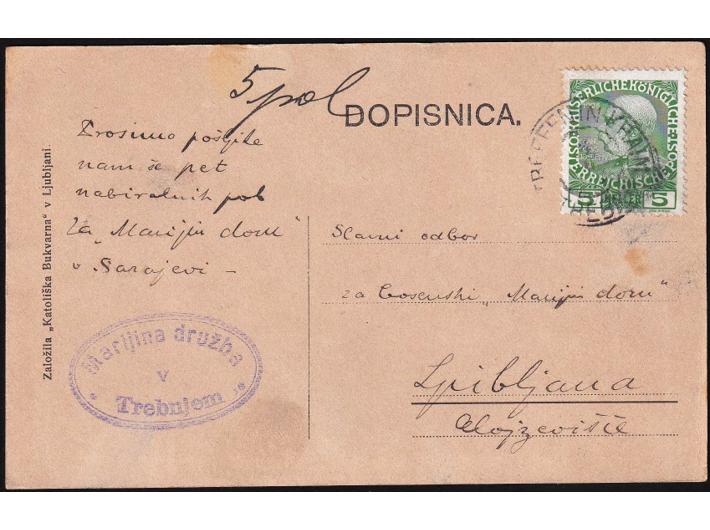 5 pol
DOPISNICA.
Prosimo pošljite
nam še pet
nabiralnih pol
za „Marijin dom"
v Sarajevi –
Založila „Katoliška Bukvarna" v Ljubljani.
Marijina družba
v
Trebnjem
KAISERLICHE KÖNIGLICHE
ÖSTERREICHISCHE
5
5
TREFFEN IN KRAIN
Slavni odbor
za bosenski „Marijin dom"
Ljubljana
Alojzevišče